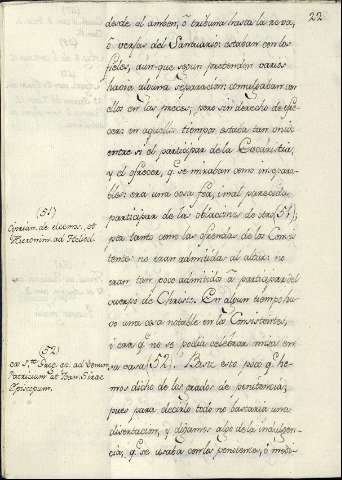 22
desde el ambon, ó tribuna hasta la reva,
ó verjas del Santuario: estaban con los
fieles, aunque segun pretenden varios
havia alguna separacion: comulgaban con
ellos en las preces, pero sin derecho de ofre
cer: en aquellos tiempos estaba tan unido
entre si el participar de la Eucaristia,
y el ofrecer, q.e se miraban como insepara-
bles: era una cosa fea, i mal parecida
participar de las oblaciones de otro (51),
por tanto como las ofrendas de los Consis
tentes no eran admitidas al altar: no
eran tam poco admitidos á participar del
cuerpo de Christo. En algun tiempo hu
vo una cosa notable en los Consistentes,
i era q.e no se podia celebrar misa en
su casa (52). Baste esto poco q.e he-
mos dicho de los grados de penitencia,
pues para decirlo todo no bastaria una
disertacion, y digamos algo de la indulgen-
cia, q.e se usaba con los penitentes, ó mode-
(51)
Ciprian. de eleemos. et
Hieronim. ad Heliod.
(52)
ex S.to Greg. ep. ad
Patricium et Joan.
Episcopum.